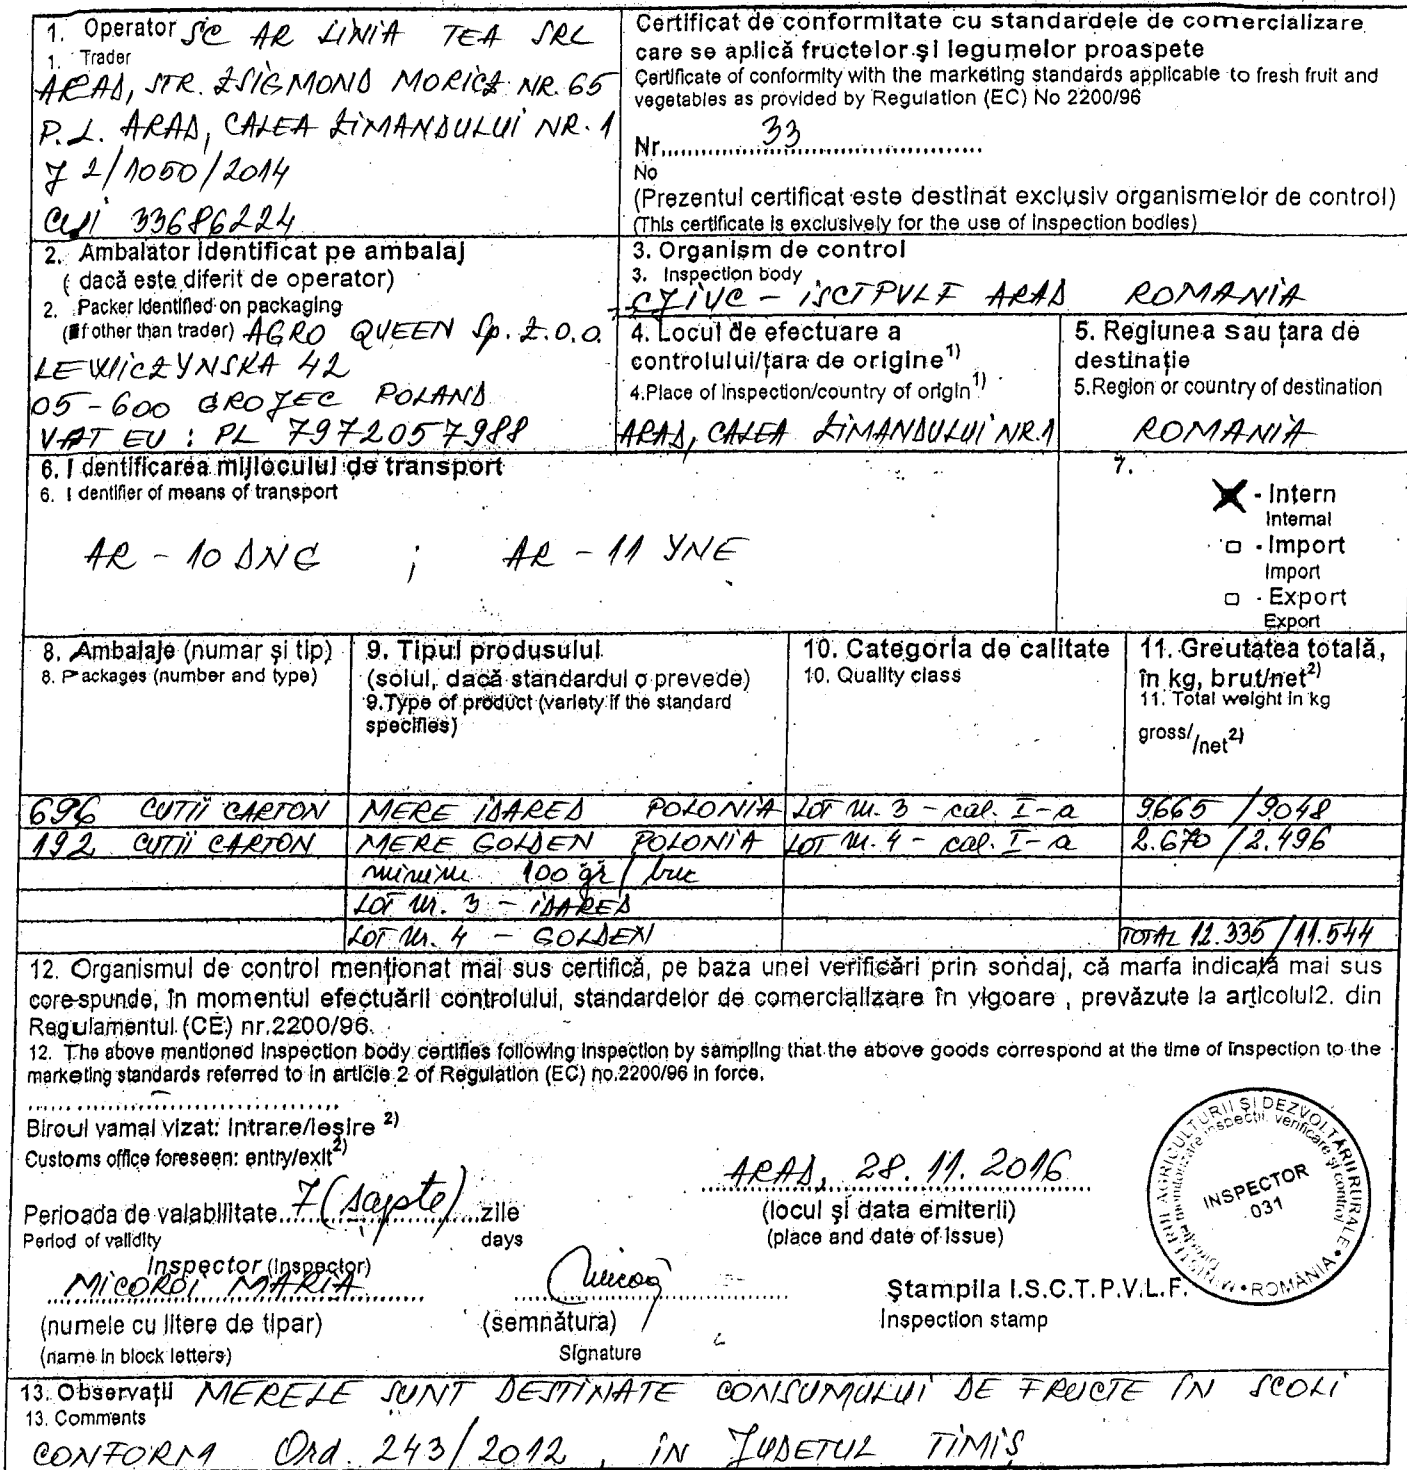 1. Operator SC AR LINIA TEA SRL
1. Trader
ARAD, STR. ZSIGMOND MORICZ NR. 65
P.L. ARAD, CALEA ZIMANDULUI NR. 1
J 2/1050/2014
CUI 33686224
Certificat de conformitate cu standardele de comercializare
care se aplică fructelor și legumelor proaspete
Certificate of conformity with the marketing standards applicable to fresh fruit and
vegetables as provided by Regulation (EC) No 2200/96
Nr. 33
No
(Prezentul certificat este destinat exclusiv organismelor de control)
(This certificate is exclusively for the use of inspection bodies)
2. Ambalator identificat pe ambalaj
( dacă este diferit de operator)
2. Packer identified on packaging
(if other than trader) AGRO QUEEN Sp. Z.O.O.
LEWICZYNSKA 42
05-600 GROJEC POLAND
VAT EU : PL 7972057988
3. Organism de control
3. Inspection body
CJIVC - ISCTPVLF ARAD ROMANIA
4. Locul de efectuare a
controlului/țara de origine 1)
4.Place of inspection/country of origin 1)
ARAD, CALEA ZIMANDULUI NR.1
5. Regiunea sau țara de
destinație
5.Region or country of destination
ROMANIA
6. I dentificarea mijlocului de transport
6. I dentifier of means of transport
AR - 10 DNG ; AR - 11 YNE
7.
- Intern
Internal
- Import
Import
- Export
Export
8. Ambalaje (numar și tip)
8. Packages (number and type)
9. Tipul produsului
(soiul, dacă standardul o prevede)
9.Type of product (variety if the standard
specifies)
10. Categoria de calitate
10. Quality class
11. Greutatea totală,
în kg, brut/net 2)
11. Total weight in kg
gross/ /net 2)
696 CUTII CARTON MERE IDARED POLONIA LOT nr. 3 - cal. I-a 9665 / 9048
192 CUTII CARTON MERE GOLDEN POLONIA LOT nr. 4 - cal. I-a 2.670 / 2.496
minim 100 gr / buc
LOT nr. 3 - IDARED
LOT nr. 4 - GOLDEN TOTAL 12.335 / 11.544
12. Organismul de control menționat mai sus certifică, pe baza unei verificări prin sondaj, că marfa indicată mai sus
corespunde, în momentul efectuării controlului, standardelor de comercializare în vigoare , prevăzute la articolul2. din
Regulamentul (CE) nr.2200/96.
12. The above mentioned inspection body certifies following inspection by sampling that the above goods correspond at the time of inspection to the
marketing standards referred to in article 2 of Regulation (EC) no.2200/96 in force.
Biroul vamal vizat: intrare/ieșire 2)
Customs office foreseen: entry/exit 2)
Perioada de valabilitate 7 (sapte) zile
Period of validity days
ARAD, 28.11.2016
(locul și data emiterii)
(place and date of issue)
Inspector (inspector)
MICOROI MARIA
(numele cu litere de tipar)
(name in block letters)
(semnătura)
Signature
Ștampila I.S.C.T.P.V.L.F.
Inspection stamp
MINISTERUL AGRICULTURII ȘI DEZVOLTĂRII RURALE • ROMÂNIA •
inspecții, verificare și control
INSPECTOR
031
13. Observații MERELE SUNT DESTINATE CONSUMULUI DE FRUCTE IN SCOLI
13. Comments
CONFORM Ord. 243/2012, IN JUDETUL TIMIȘ